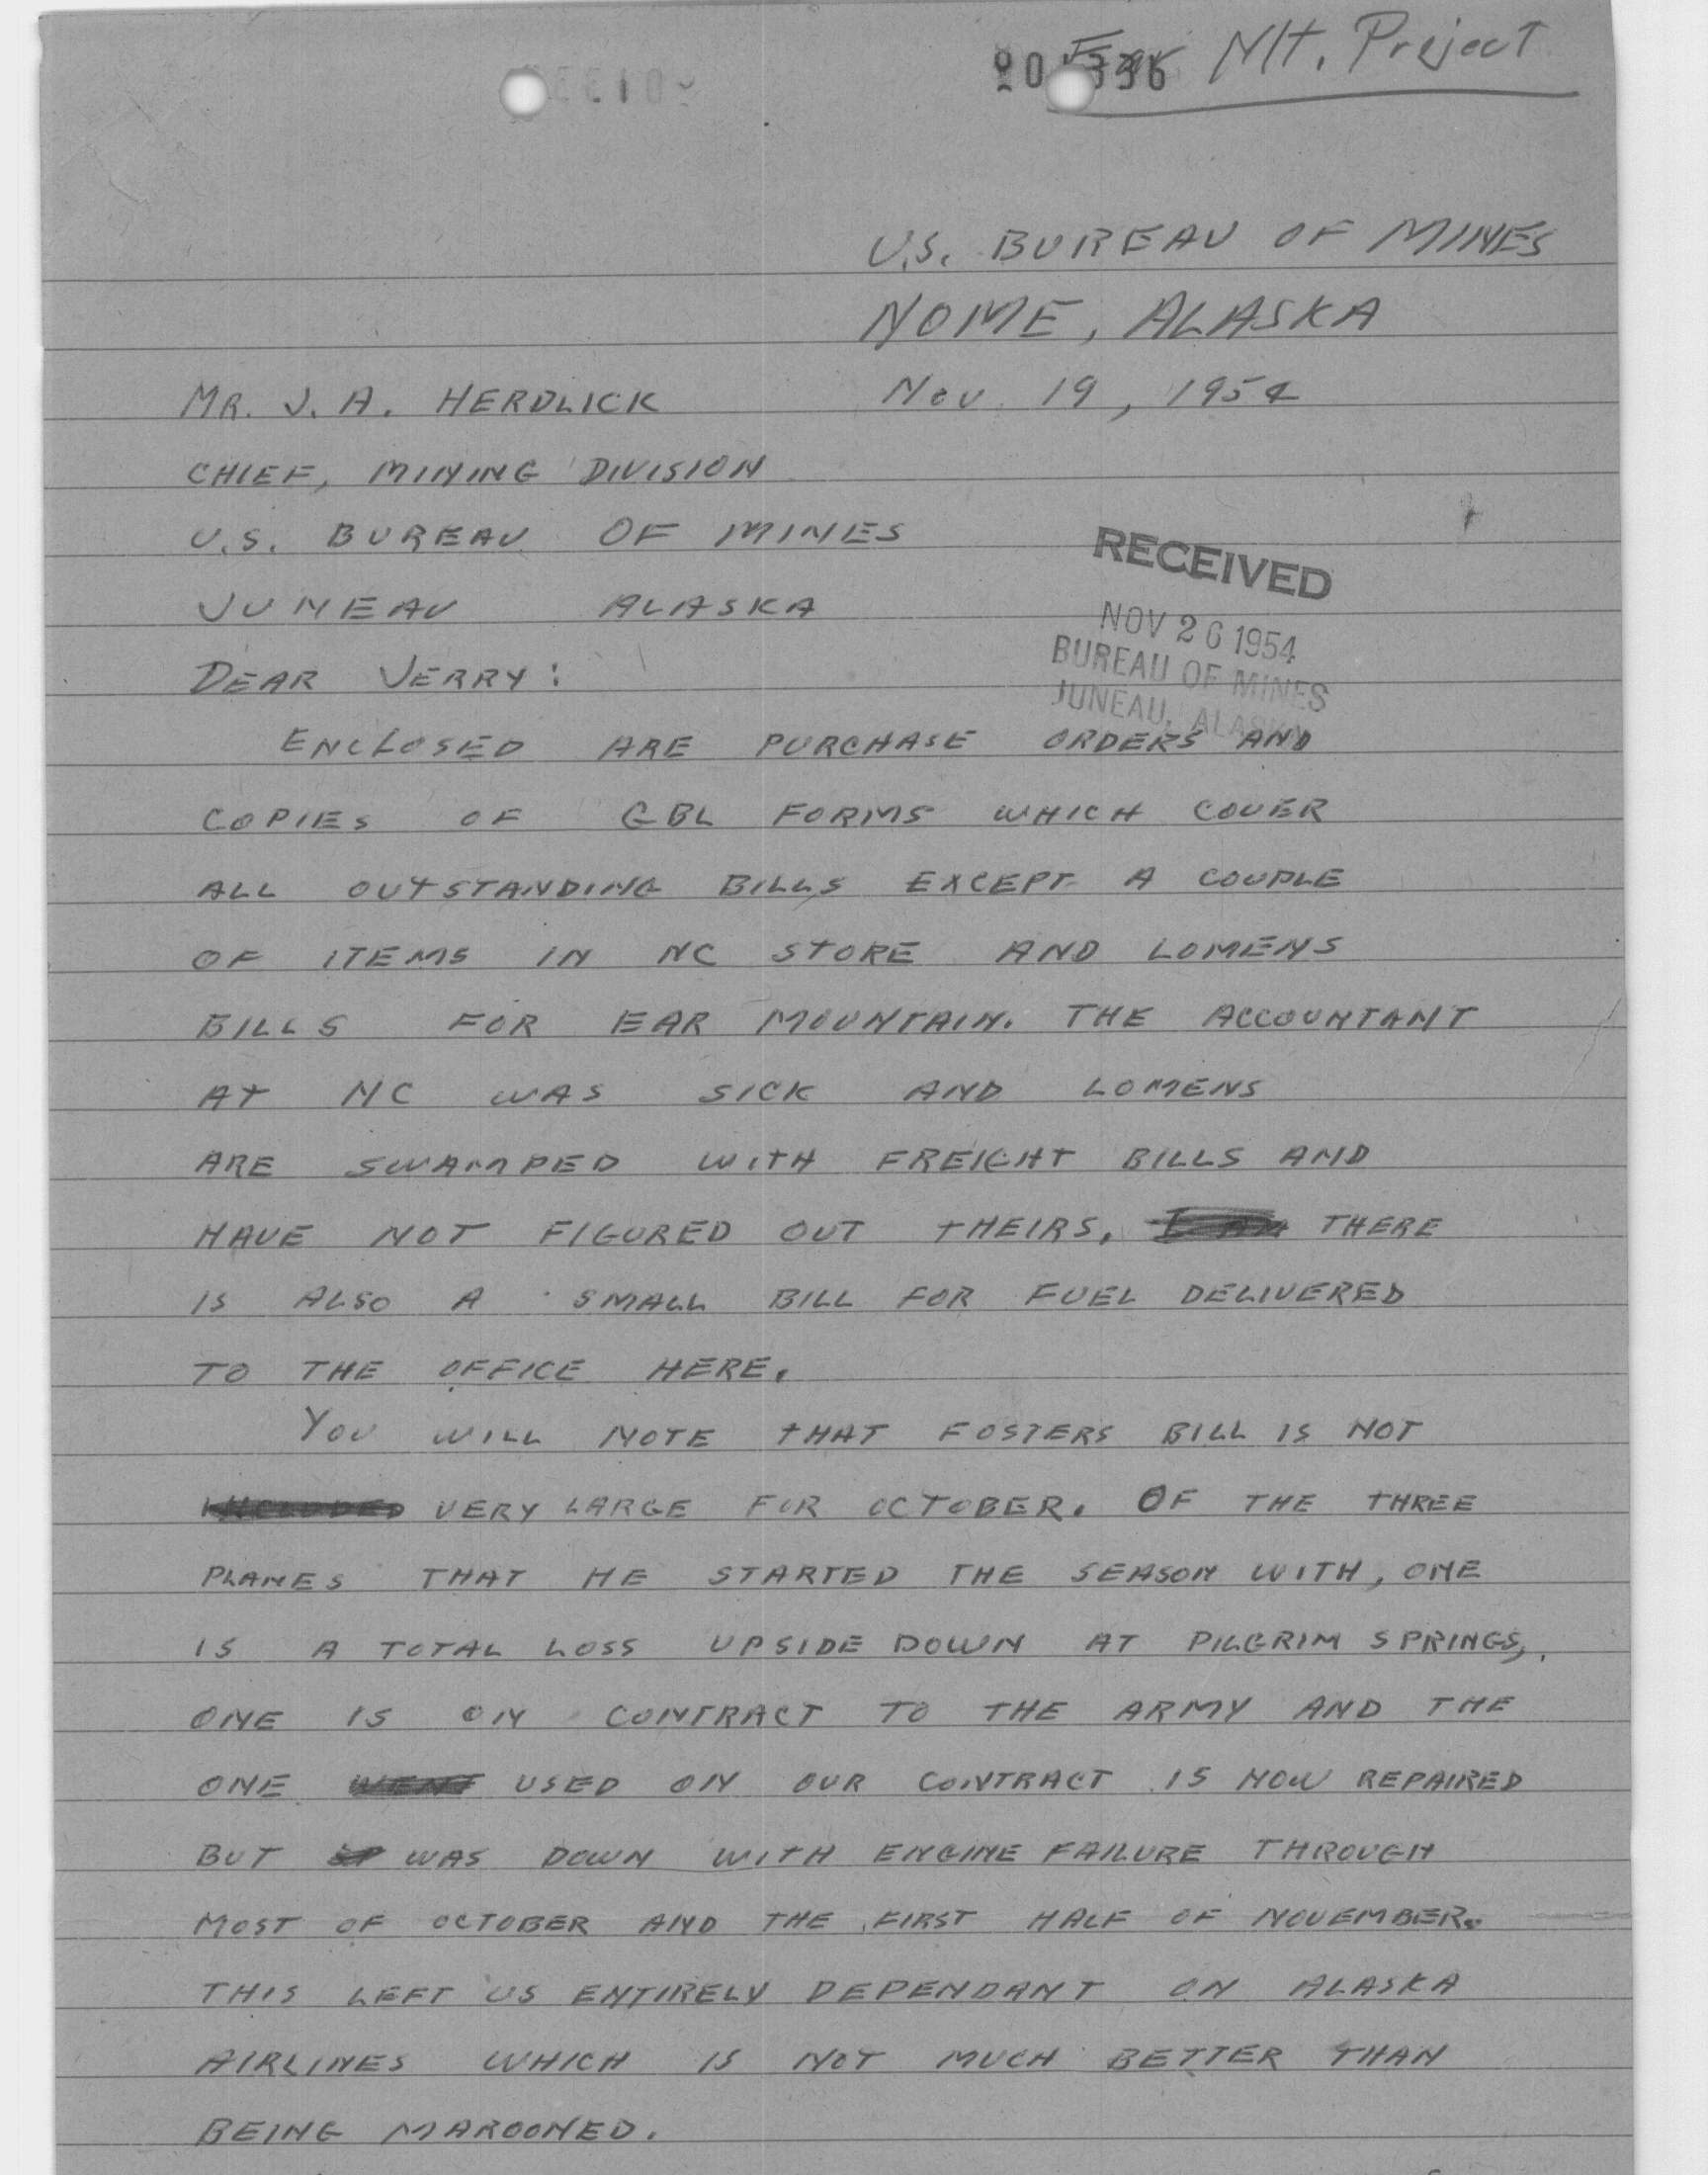 Ear Mt. Project
U.S. BUREAU OF MINES
NOME, ALASKA
MR. J. A. HERDLICK Nov 19, 1954
CHIEF, MINING DIVISION
U.S. BUREAU OF MINES
JUNEAU ALASKA
RECEIVED
NOV 26 1954
BUREAU OF MINES
JUNEAU, ALASKA
DEAR JERRY:
ENCLOSED ARE PURCHASE ORDERS AND
COPIES OF GBL FORMS WHICH COVER
ALL OUTSTANDING BILLS EXCEPT A COUPLE
OF ITEMS IN NC STORE AND LOMENS
BILLS FOR EAR MOUNTAIN. THE ACCOUNTANT
AT NC WAS SICK AND LOMENS
ARE SWAMPED WITH FREIGHT BILLS AND
HAVE NOT FIGURED OUT THEIRS. I AM THERE
IS ALSO A SMALL BILL FOR FUEL DELIVERED
TO THE OFFICE HERE.
YOU WILL NOTE THAT FOSTERS BILL IS NOT
INCLUDED VERY LARGE FOR OCTOBER. OF THE THREE
PLANES THAT HE STARTED THE SEASON WITH, ONE
IS A TOTAL LOSS UPSIDE DOWN AT PILGRIM SPRINGS,
ONE IS ON CONTRACT TO THE ARMY AND THE
ONE WENT USED ON OUR CONTRACT IS NOW REPAIRED
BUT WAS DOWN WITH ENGINE FAILURE THROUGH
MOST OF OCTOBER AND THE FIRST HALF OF NOVEMBER.
THIS LEFT US ENTIRELY DEPENDANT ON ALASKA
AIRLINES WHICH IS NOT MUCH BETTER THAN
BEING MAROONED.